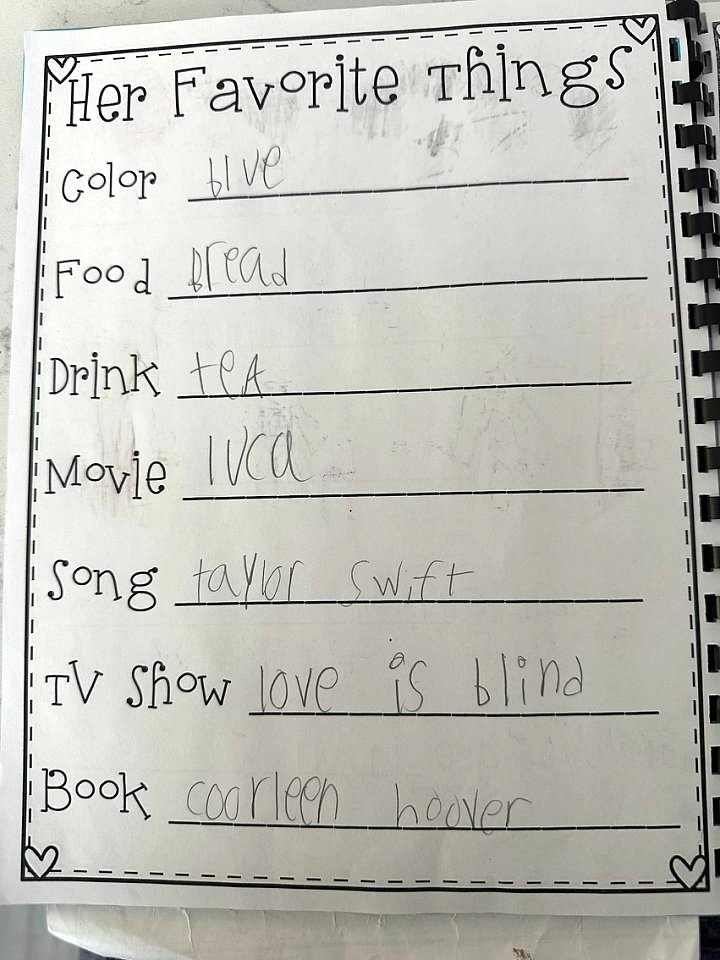 Her Favorite Things
Color blue
Food Bread
Drink teA
Movie luca
Song taylor swift
TV Show love is blind
Book coorleen hoover